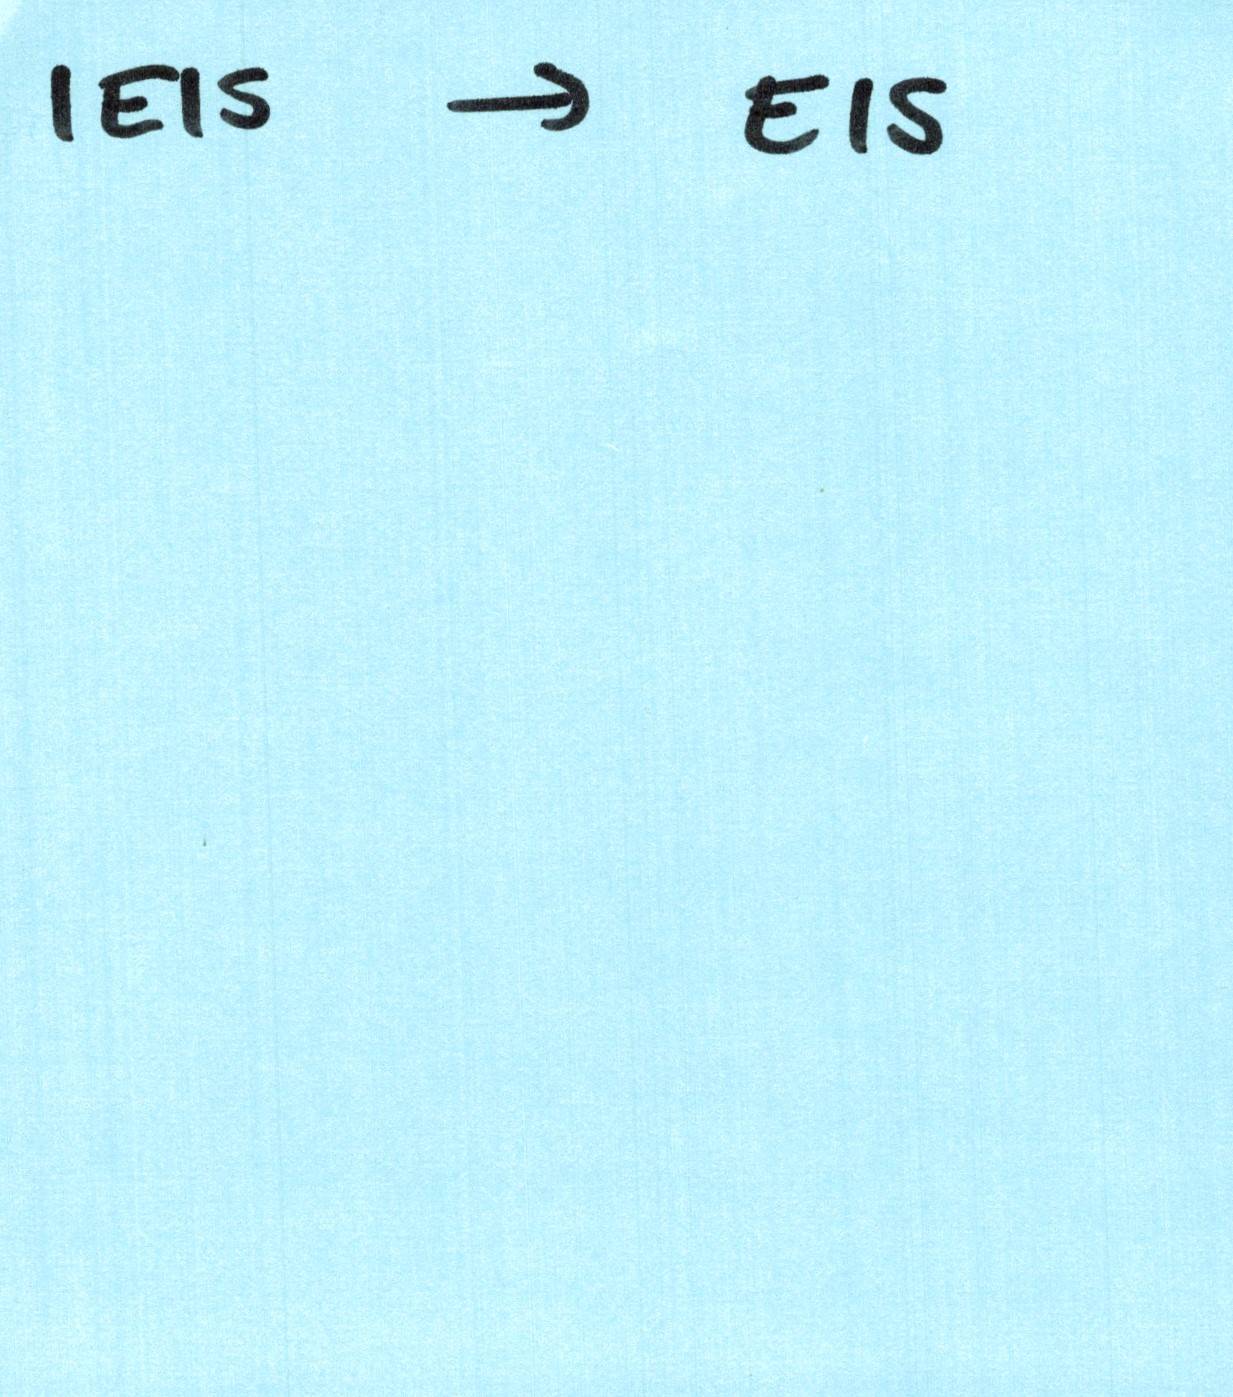 IEIS → EIS